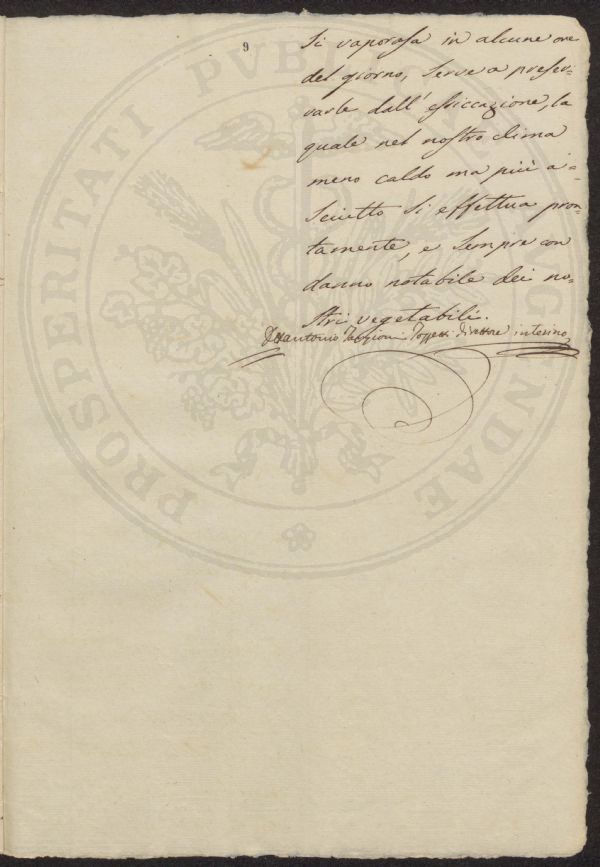 9
si vaporosa in alcune ore
del giorno, serve a preser-
varle dall' essiccazione, la
quale nel nostro clima
meno caldo ma più a=
sciutto si effettua pron
tamente, e sempre con
danno notabile dei no=
stri vegetabili.
Dr Antonio Targioni Tozzetti Direttore interino
PROSPERITATI PVBLICAE AVGENDAE